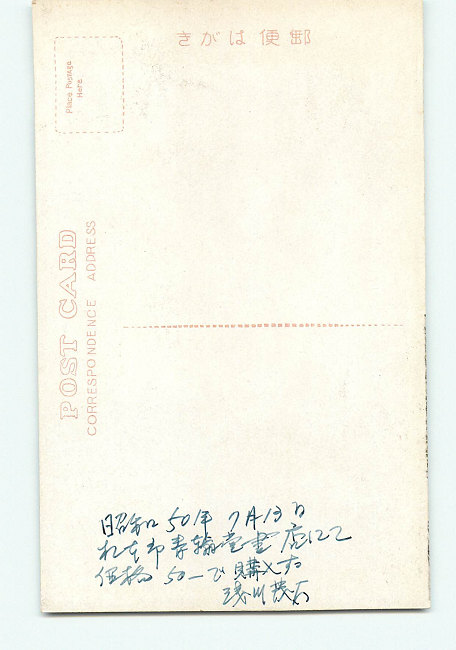 郵便はがき
Place Postage
Here
POST CARD
CORRESPONDENCE ADDRESS
昭和 50年 7月13日
輪堂書店にて
価格 50ーで購入す
浅川